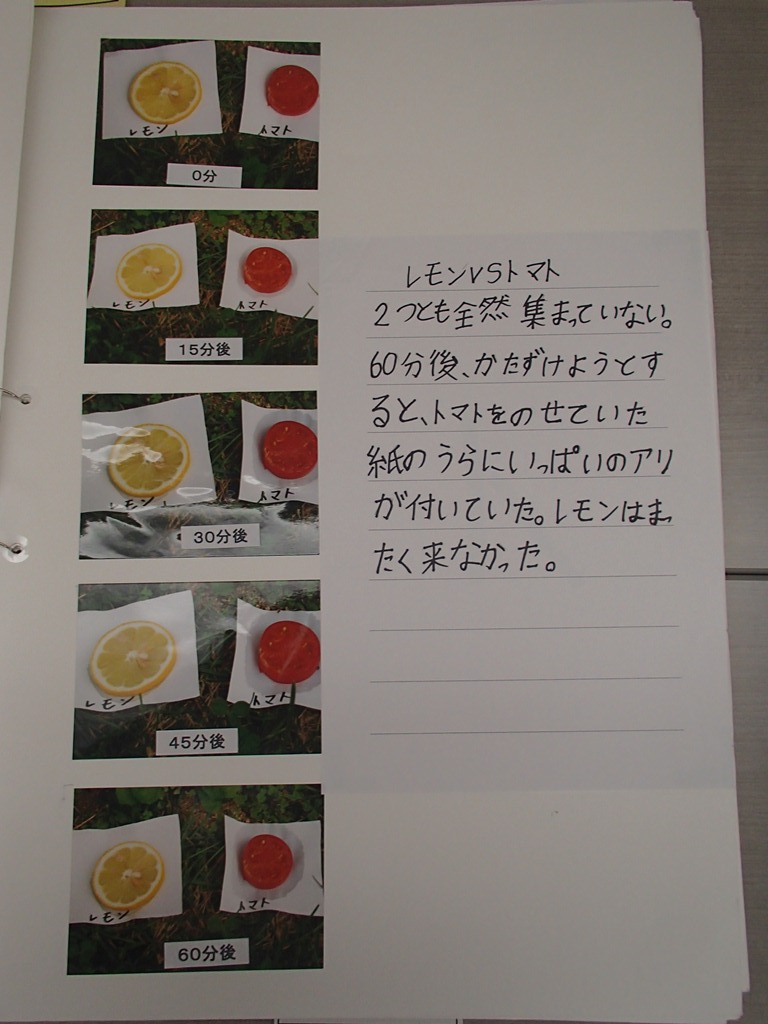 レモン
トマト
0分
レモン
トマト
15分後
レモン
トマト
30分後
レモン
トマト
45分後
レモン
トマト
60分後
レモンVSトマト
2つとも全然集まっていない。
60分後、かたずけようとす
ると、トマトをのせていた
紙のうらにいっぱいのアリ
が付いていた。レモンはまっ
たく来なかった。